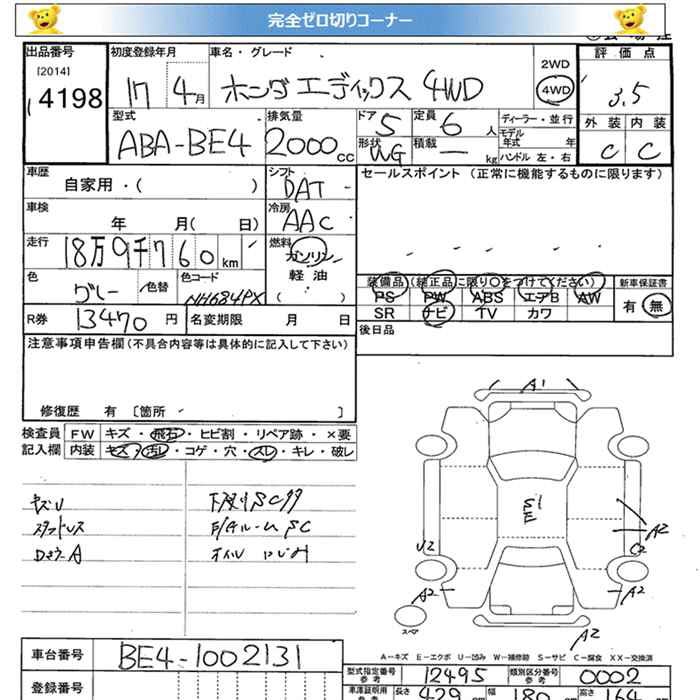 完全ゼロ切りコーナー
出品番号 初度登録年月 車名・グレード 評価点
[2014] 2WD
4198 17 4月 ホンダ エディックス 4WD 4WD 3.5
型式 排気量 ドア 5 定員 6人 ディーラー・並行 外装 内装
ABA-BE4 2000cc 形状 WG 積載 ー kg モデル年式 年 C C
ハンドル 左・右
車歴 シフト セールスポイント (正常に機能するものに限ります)
自家用・( ) DAT
車検 冷房
年 月( 日) AAC
走行 燃料
18万9千760km ガソリン
軽油
( )
色 色コード 装備品 (純正品に限り○をつけてください) 新車保証書
グレー /色替 NH684PX PS PW ABS エアB AW 有 無
SR ナビ TV カワ
R券 13470円 名変期限 月 日 後日品
注意事項申告欄(不具合内容等は具体的に記入して下さい)
修復歴 有 〔箇所 〕
検査員 FW キズ・飛石・ヒビ割・リペア跡・×要
記入欄 内装 キズ・汚レ・コゲ・穴・スレ・キレ・破レ
A1
キズU 下廻りSCサ
スタットレス F/Aルーム SC
DキウA オイルにじみ
A2
U2 C2
A2 A2
スペア
A2
A−キズ E−エクボ U−凹み W−補修跡 S−サビ C−腐食 XX−交換済
車台番号 BE4-1002131
型式指定番号 参考 12495 類別区分番号 参考 0002
登録番号
車庫証明用 参考 長さ 429cm 幅 180cm 高さ 164